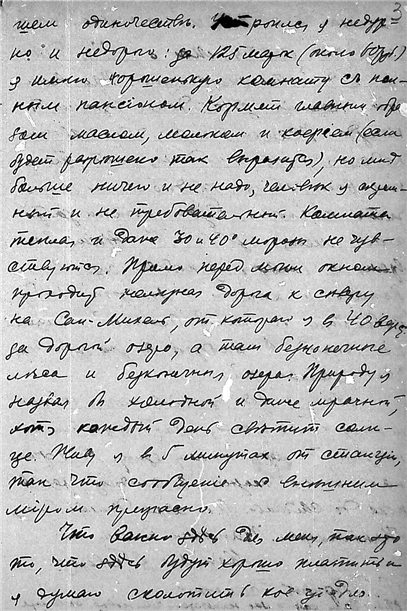 3
шем одиночестве. Устроился я недур-
но и недорого: за 125 марок (около
я имею хорошенькую комнату съ пол-
ным пансионом. Кормят главным обра-
зом маслом, молоком и кофеем (если
будет разрешено так выразиться), но мне
больше ничего и не надо, человек я
и не требовательный. Комната
теплая и даже 30 и 40° мороза не чув-
ствуются. Прямо перед моим окном
проходит дорога к северу
на Сан-Михель, от которого я в 40
за дорогой озеро, а там бесконечные
леса и бесконечные озера. Природу я
назвал бы холодной и даже мрачной,
хотя каждый день светит солн-
це. Живу я в 5 минутах от станции,
так что сообщение с внешним
миром прекрасно.
Что важно здесь для меня, так это
то, что здесь будут хорошо платить и
я думаю сколотить кое что для